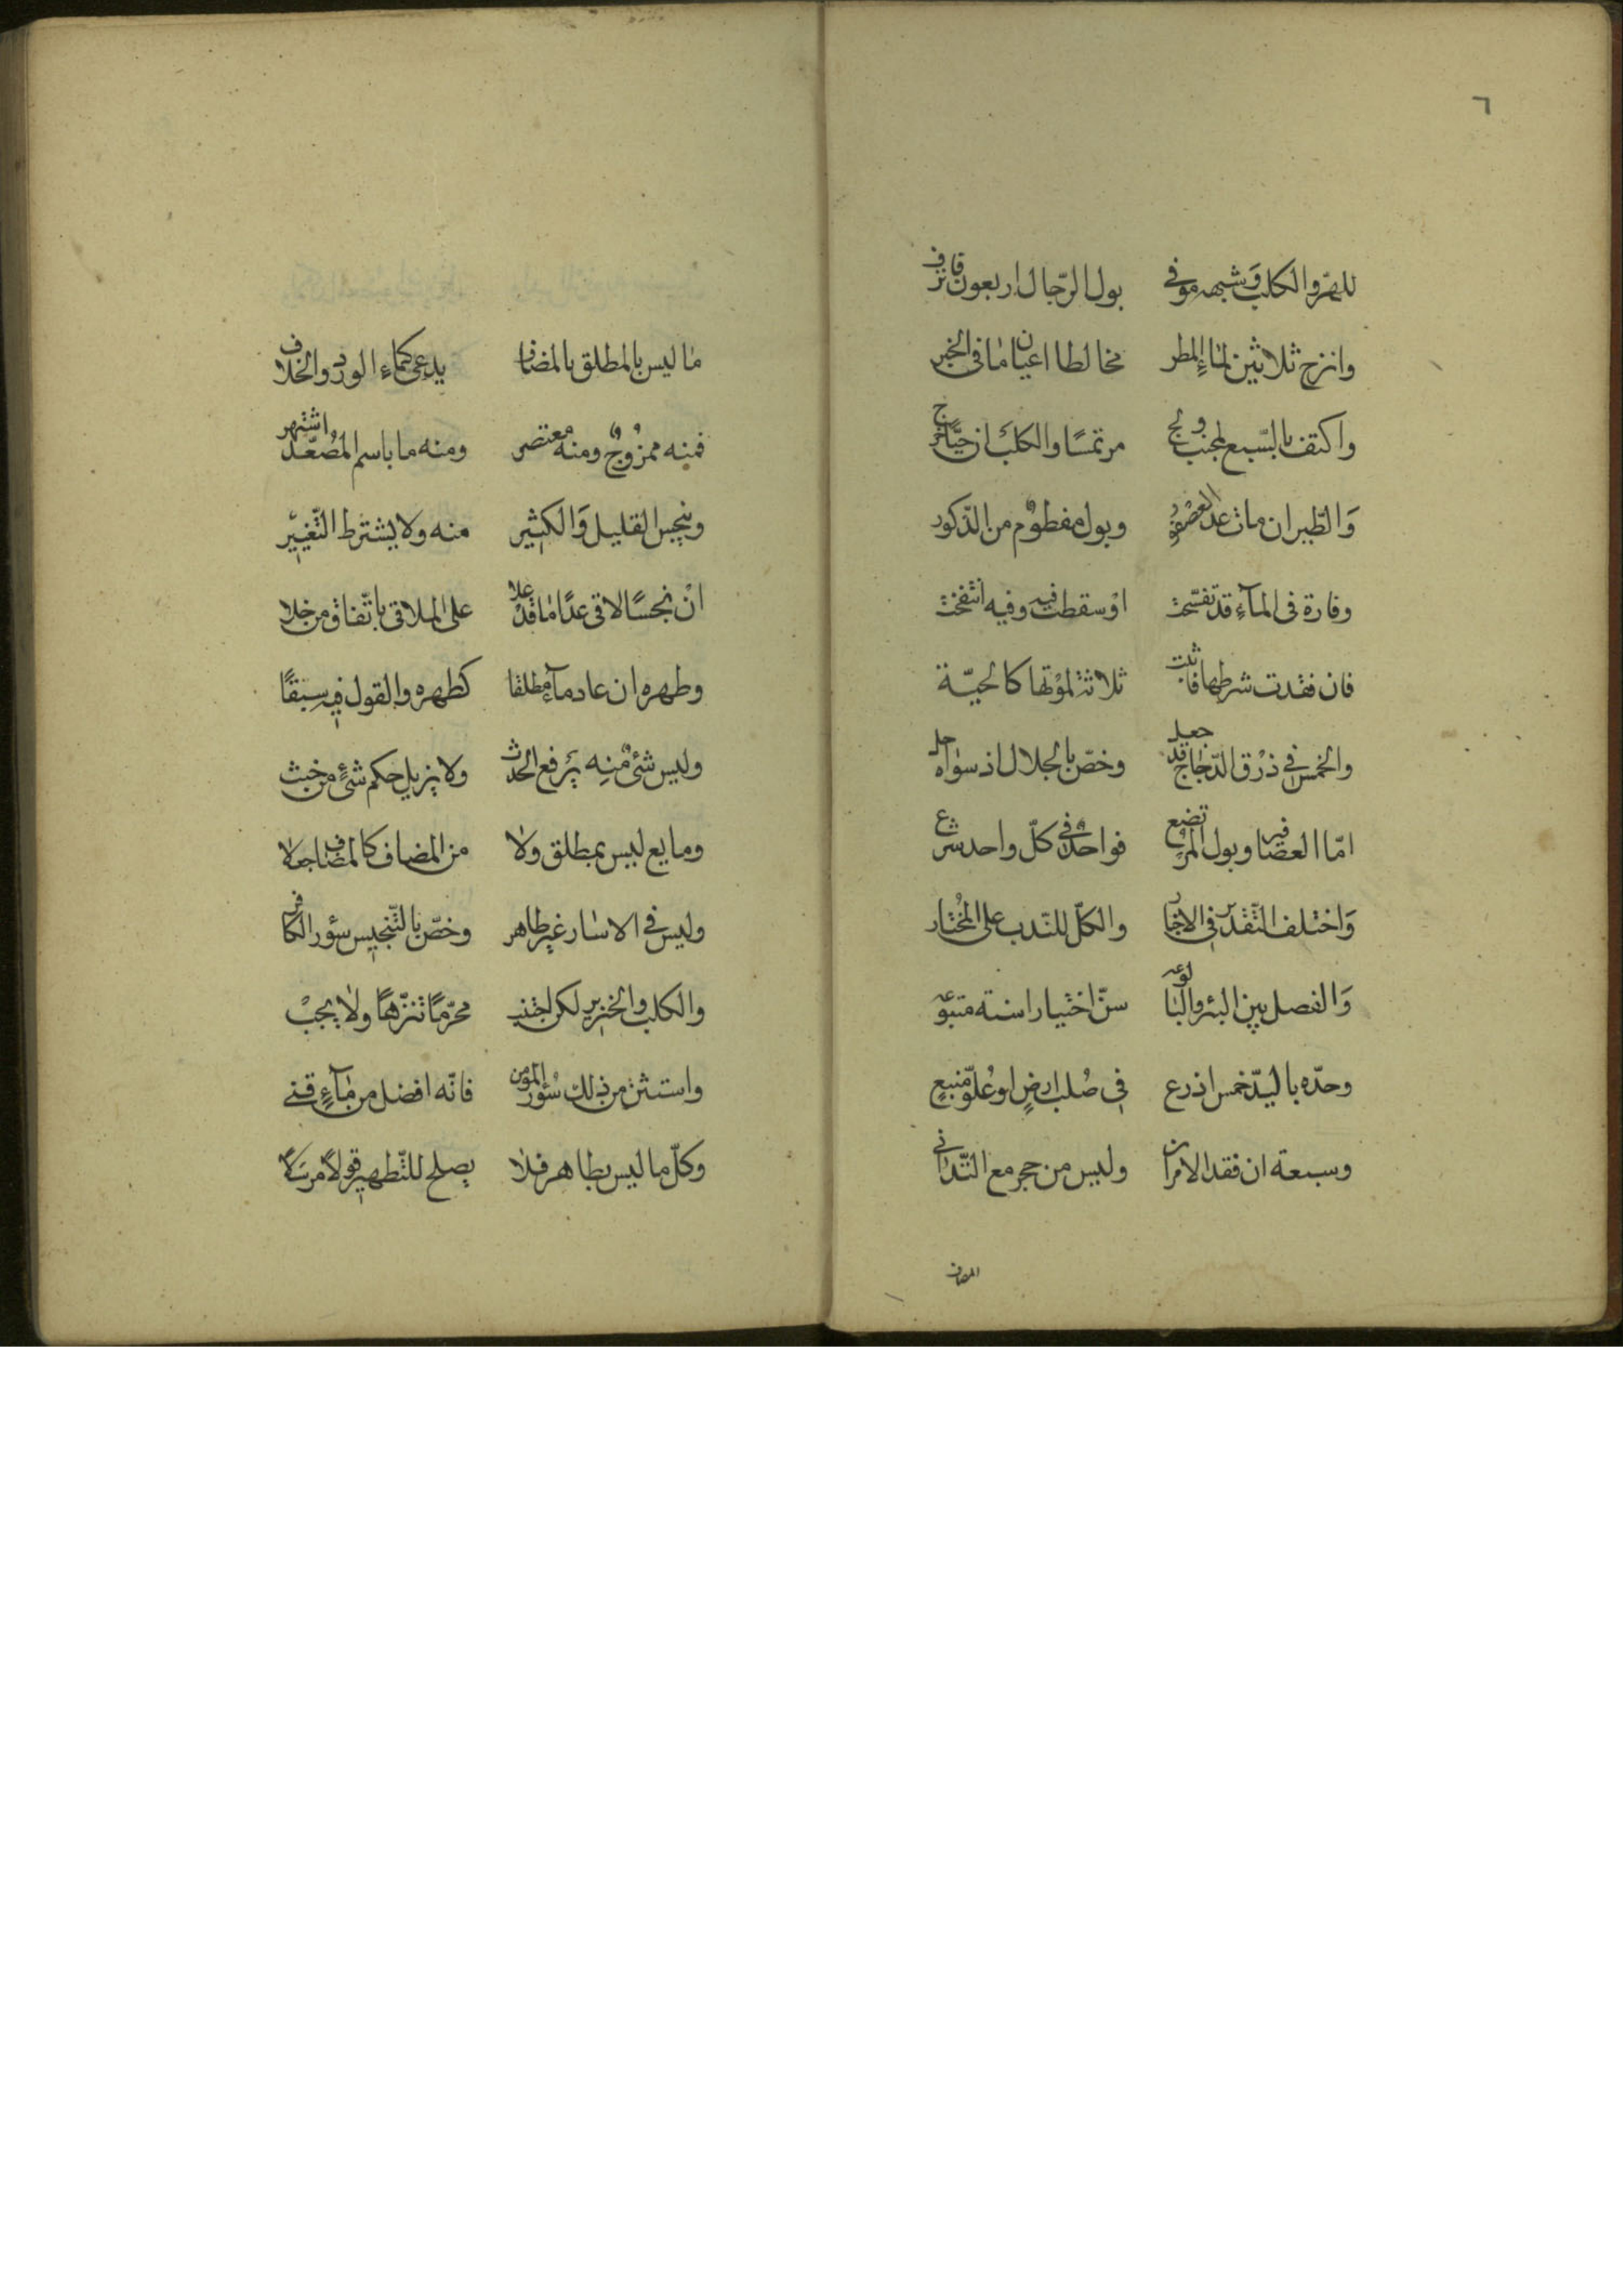 ٦
للهرّ والكلب وشبهه وفي بول الرّجال اربعون فانزف
وانزح ثلاثين لماء المطر مخالطا اعيان ما في الخبر
واكتف بالسّبع لجنب ولج مرتمسًا والكلب ان حيًّا خرج
وَالطّير ان مات عدا العصفور وبول مفطوم من الذّكور
وفارة فى المآء قد تفسّخت اوْ سقطت فيه وفيه انتفخت
فان فقدت شرطها فاثبت ثلاثة لموْتها كالحيّة
والخمس فى ذرْق الدّجاج قد جعل وخصّ بالجلال اذ سواه حل
امّا العصافير وبول المرضع فواحدٌ فى كلّ واحد شرع
وَاختلف التّقدير فى الاخبار والكلّ للنّدب على المُختار
وَالفصل بين البئر والبالوعه سنّ اختيارا سنة متبوعه
وحدّه باليد خمس اذرع فى صُلب ارضٍ او عُلوّ منبعٍ
وسبعة ان فقد الامران وليس من حجر مع التّدانى
المضاف
مٰا ليس بالمطلق بالمضاف يدعى كماء الورد والخلاف
فمنه ممزُوجٌ ومنه معتصر ومنه ما باسم المُصعّد اشتهر
وينجس القليل وَالكثير منه ولا يشترط التّغيير
انْ نجسًا لاقى عدًا مٰا قدْ علا على الملاقى باتّفاق من خلا
وطهره ان عاد مآءً مطلقا كطهره والقول فيه سبقًا
وليس شئٌ منه يَرفع الحدث ولا يزيل حكم شئٍ من خبث
ومايع ليس بمطلق ولا من المضاف كالمضاف جعلا
وليس فى الاسٰار غير طاهر وخصّ بالتّنجيس سؤر الكافر
والكلب والخنزير لكن اجتنب محرّمًا تنزّهًا ولا يجبْ
واستثن من ذلك سُؤر المؤمن فانّه افضل من مٰآءٍ قنى
وكلّ ما ليس بطاهر فلا يصلح للتّطهير قولاً مرسَلاً